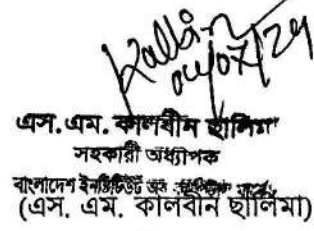 Kalbin
04/07/24
এস. এম. কালবীন ছালিমা
সহকারী অধ্যাপক
বাংলাদেশ ইনস্টিটিউট অব
(এস. এম. কালবীন ছালিমা)